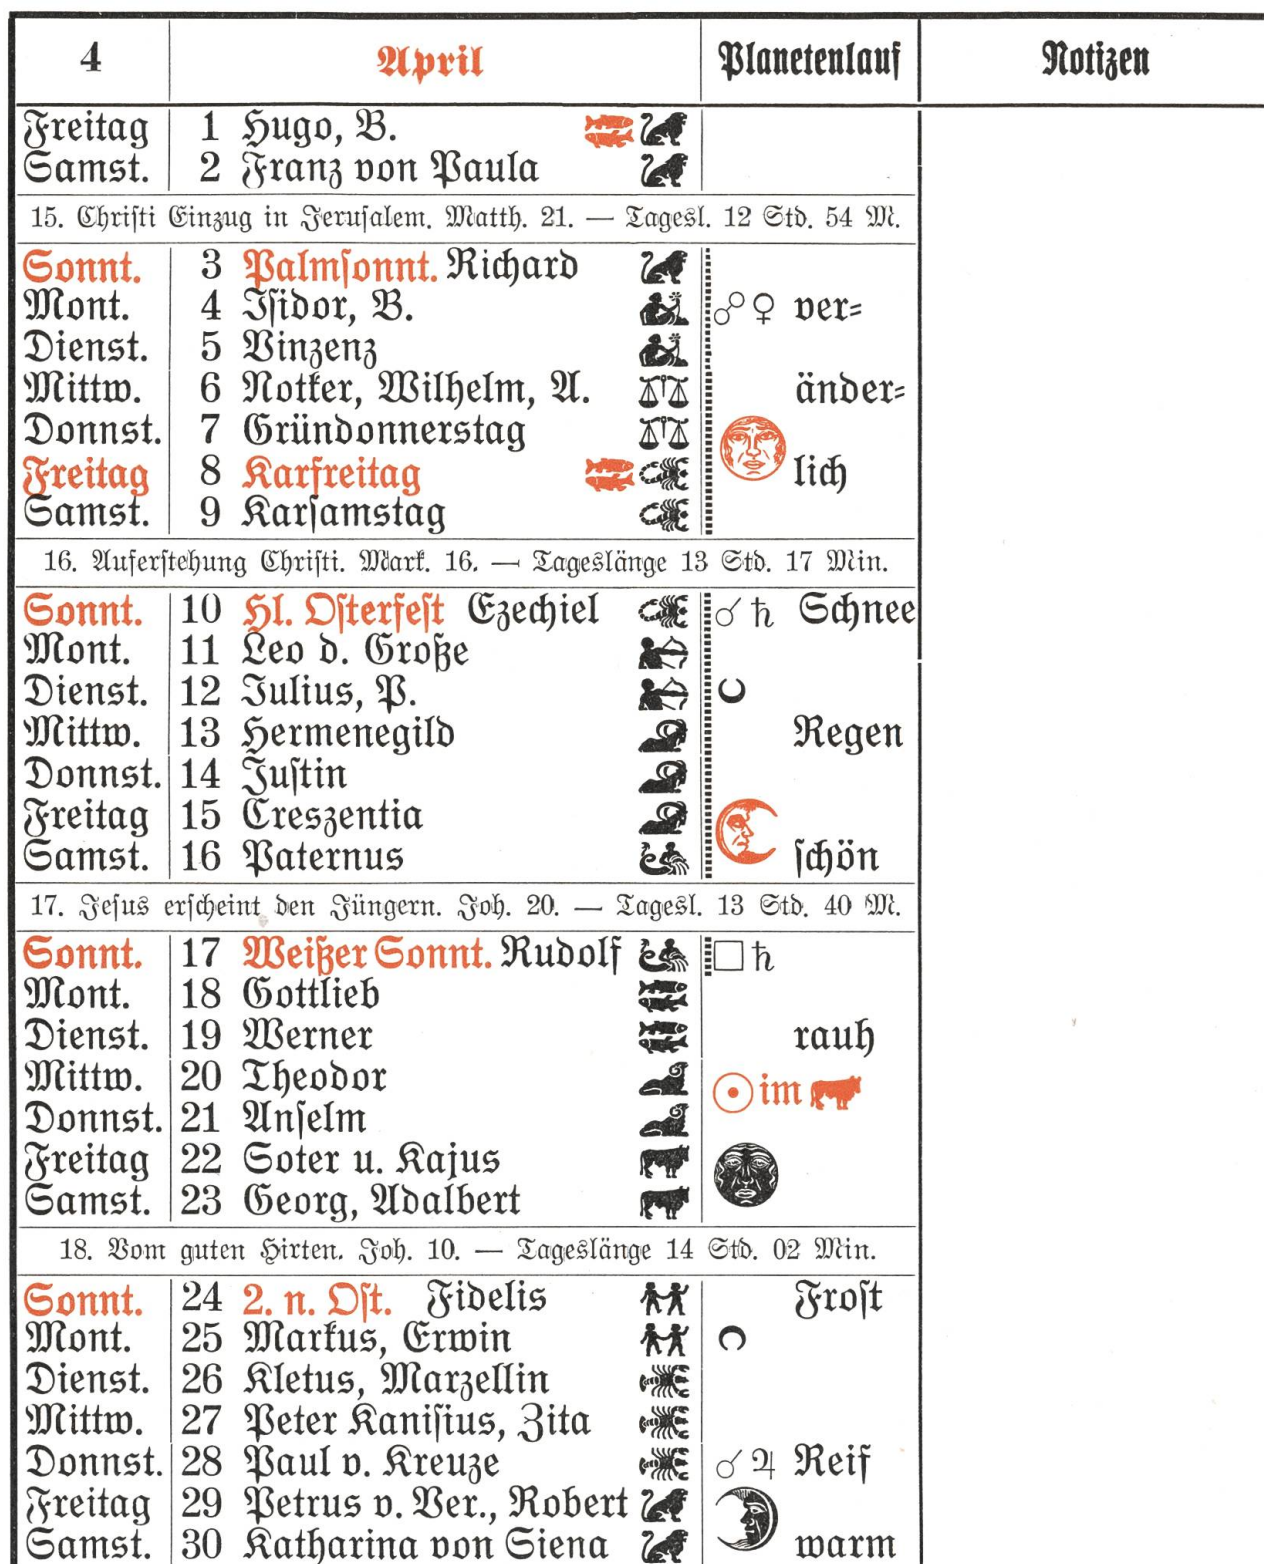 4 April Planetenlauf Notizen
Freitag 1 Hugo, B.
Samst. 2 Franz von Paula
15. Christi Einzug in Jerusalem. Matth. 21. — Tagesl. 12 Std. 54 M.
Sonnt. 3 Palmsonnt. Richard
Mont. 4 Isidor, B. ☍♀ ver⸗
Dienst. 5 Vinzenz
Mittw. 6 Notker, Wilhelm, A. änder⸗
Donnst. 7 Gründonnerstag
Freitag 8 Karfreitag lich
Samst. 9 Karsamstag
16. Auferstehung Christi. Mark. 16. — Tageslänge 13 Std. 17 Min.
Sonnt. 10 Hl. Osterfest Ezechiel ☌ ♄ Schnee
Mont. 11 Leo d. Große
Dienst. 12 Julius, P.
Mittw. 13 Hermenegild Regen
Donnst. 14 Justin
Freitag 15 Creszentia
Samst. 16 Paternus schön
17. Jesus erscheint den Jüngern. Joh. 20. — Tagesl. 13 Std. 40 M.
Sonnt. 17 Weißer Sonnt. Rudolf □ ♄
Mont. 18 Gottlieb
Dienst. 19 Werner rauh
Mittw. 20 Theodor ☉ im
Donnst. 21 Anselm
Freitag 22 Soter u. Kajus
Samst. 23 Georg, Adalbert
18. Vom guten Hirten. Joh. 10. — Tageslänge 14 Std. 02 Min.
Sonnt. 24 2. n. Ost. Fidelis Frost
Mont. 25 Markus, Erwin
Dienst. 26 Kletus, Marzellin
Mittw. 27 Peter Kanisius, Zita
Donnst. 28 Paul v. Kreuze ☌ ♃ Reif
Freitag 29 Petrus v. Ver., Robert
Samst. 30 Katharina von Siena warm